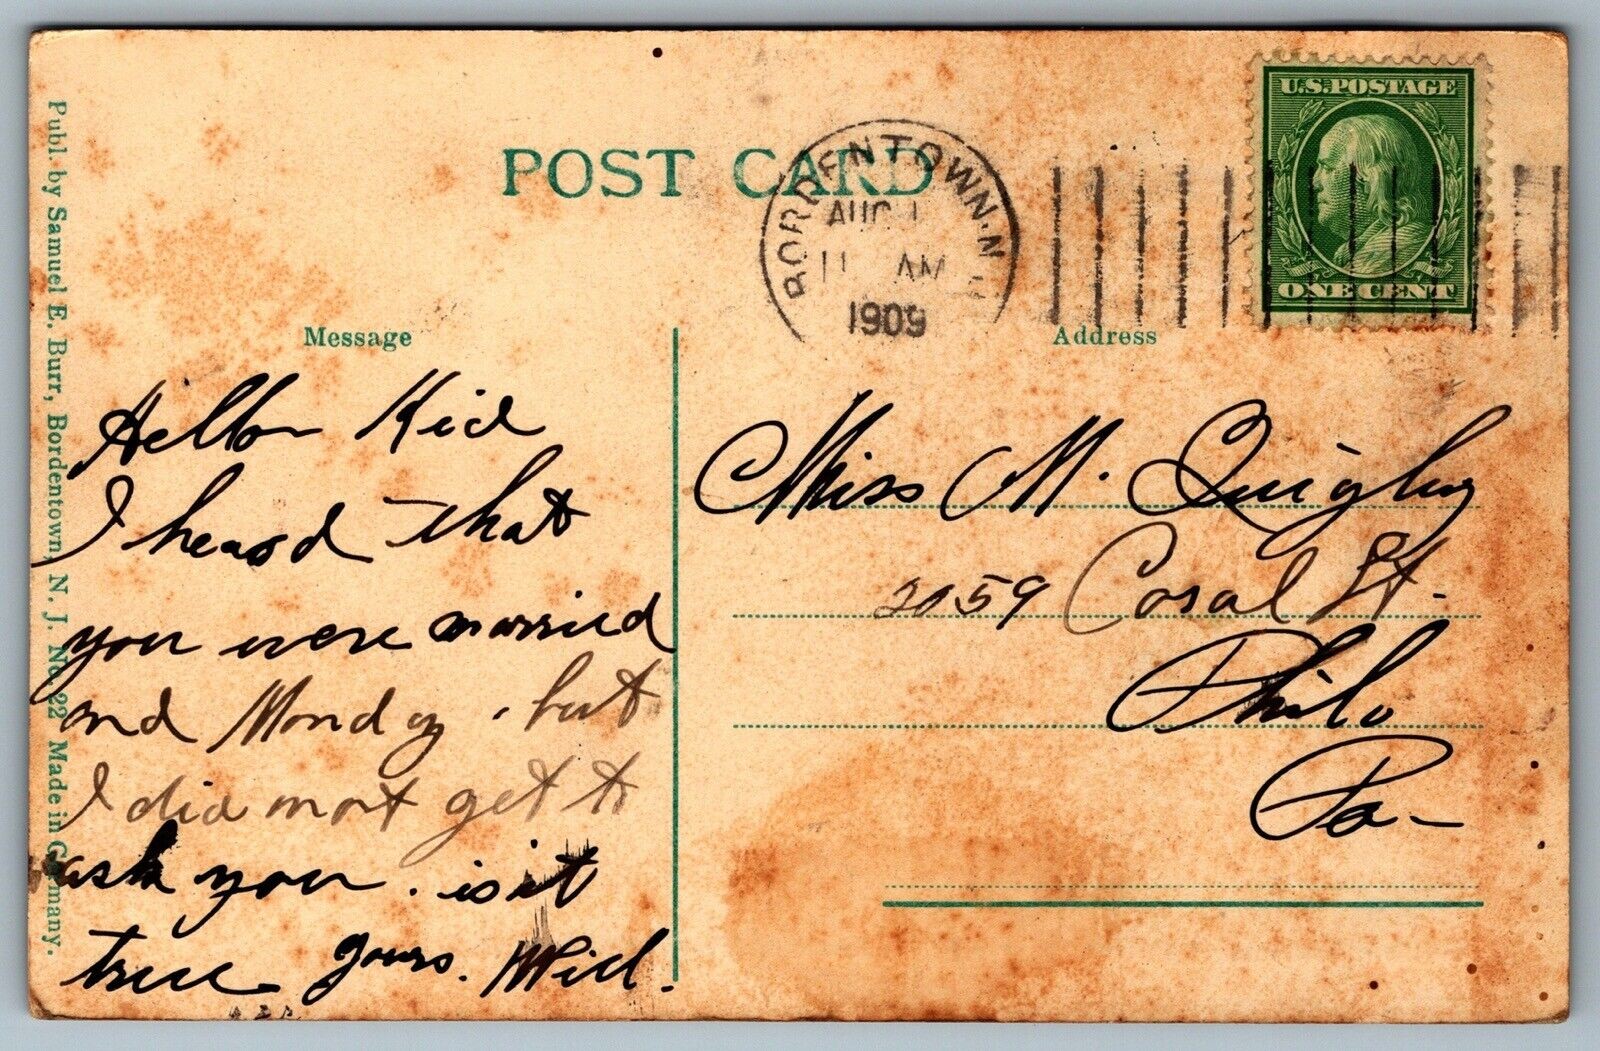 POST CARD
BORDENTOWN. N.J.
AUG 1
11 AM
1909
U.S. POSTAGE
ONE CENT
Message
Address
Hello Kid
I heard that
you were married
ond Monday. but
I did mot get to
ask you. is it
true yours. Will.
Miss M. Quigley
2059 Coral St.
Phila
Pa-
Publ. by Samuel E. Burr, Bordentown, N. J. No. 22 Made in Germany.